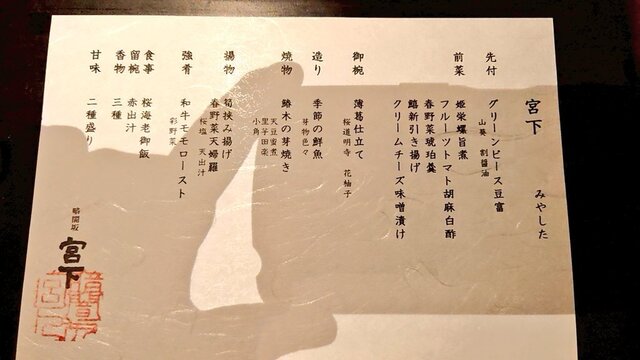 宮下　みやした
先付　グリーンピース豆富
山葵　割醤油
前菜　姫栄螺旨煮
フルーツトマト胡麻白酢
春野菜琥珀羹
鱚新引き揚げ
クリームチーズ味噌漬け
御椀　薄葛仕立て
桜道明寺　花柚子
造り　季節の鮮魚
芽物色々
焼物　鰆木の芽焼き
天豆蜜煮
里芋田楽
小角
揚物　筍挟み揚げ
春野菜天婦羅
桜塩　天出汁
強肴　和牛モモロースト
彩野菜
食事　桜海老御飯
留椀　赤出汁
香物　三種
甘味　二種盛り
宮下